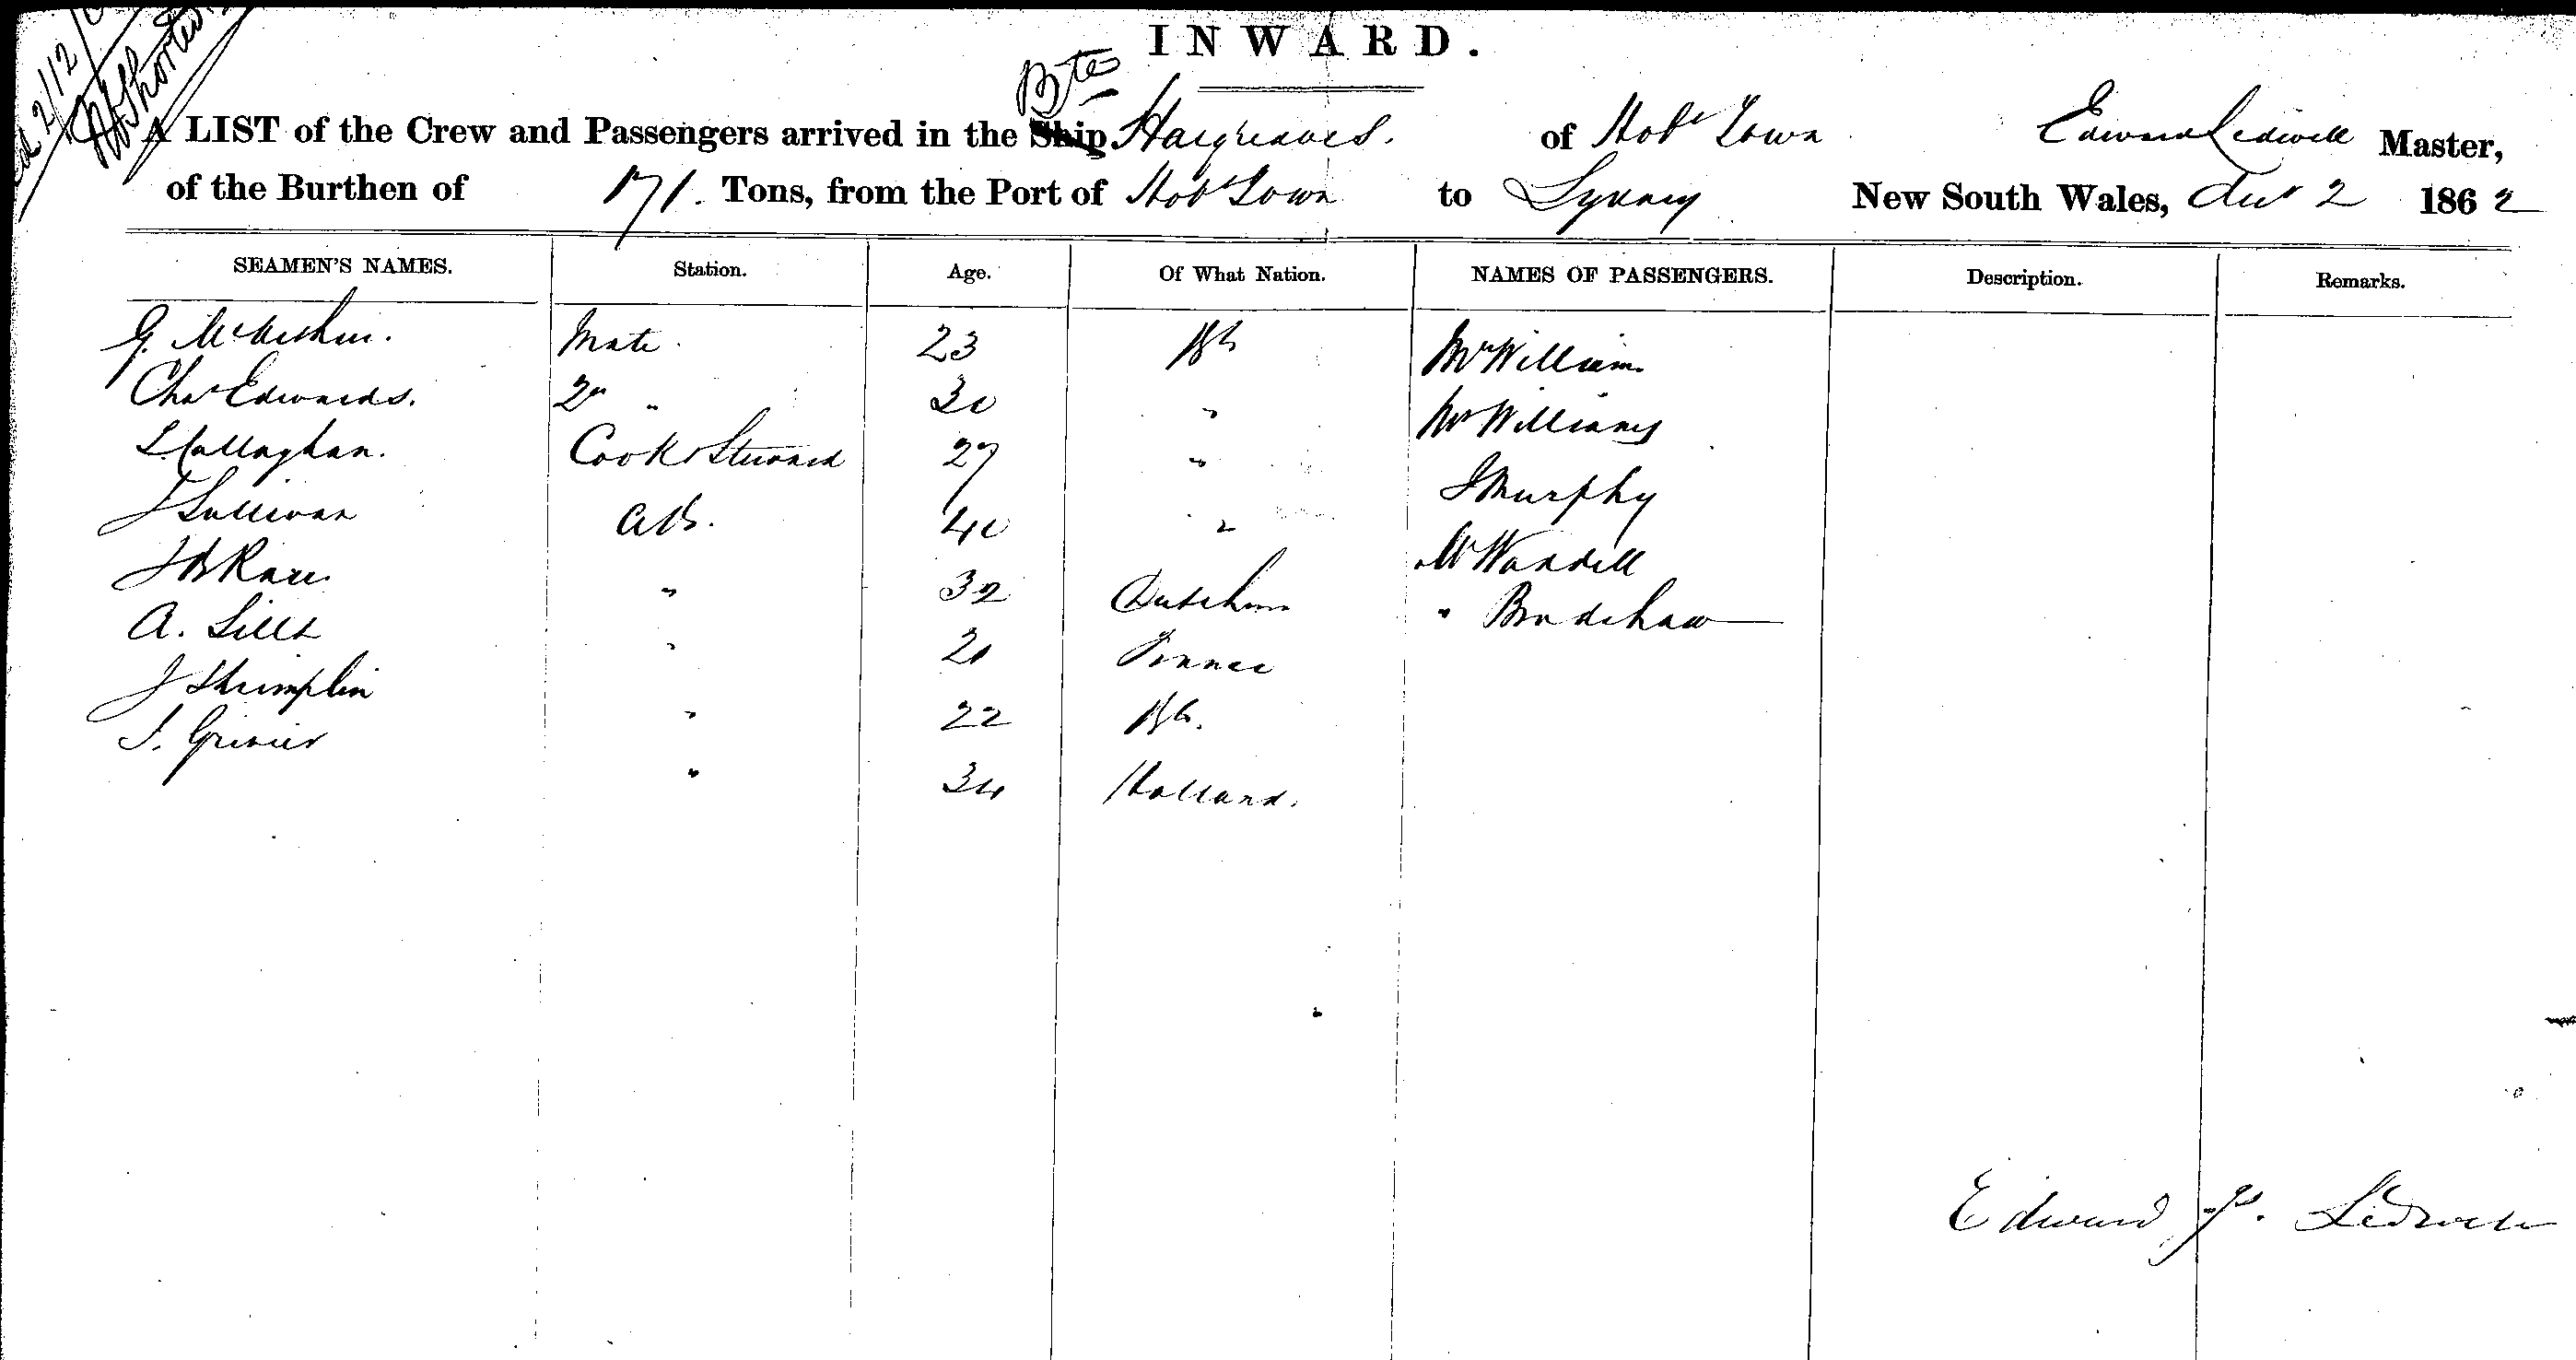 INWARD.
A LIST of the Crew and Passengers arrived in the Ship Bte Hargreaves. of Hobt Town Edward Ledwell Master,
of the Burthen of 171. Tons, from the Port of Hobt Town to Sydney New South Wales, 2 1862
SEAMEN'S NAMES. Station. Age. Of What Nation. NAMES OF PASSENGERS. Description. Remarks.
G. McArthur. Mate. 23 Mr William
Chas Edwards. 2nd " 30 " Mrs Williams
Callaghan. Cook & Steward 27 " J Murphy
J Sullivan AB. 40 " Mr Waddell
J B " 32 " Bradshaw
A. Lille " 21 France
J Shrimplin " 22
J. " 34 Holland.
Edward Ledwell